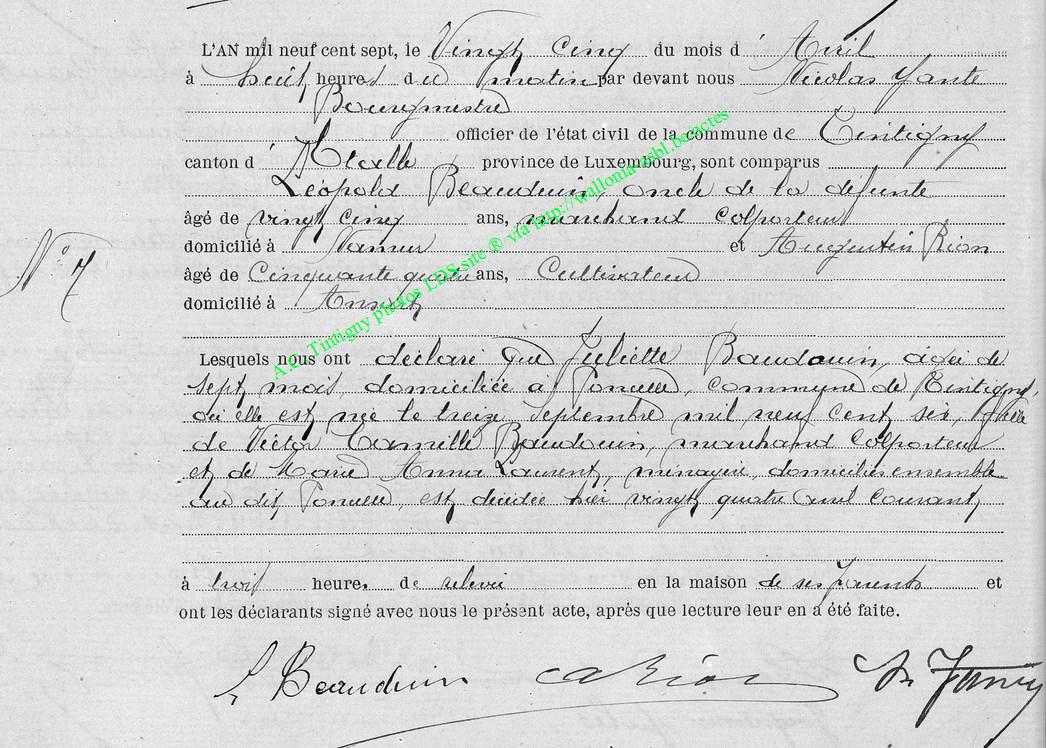 L'AN mil neuf cent sept, le Vingt cinq du mois d' Avril
à huit heures du matin par devant nous Nicolas
Bourgmestre
officier de l'état civil de la commune de Tintigny
canton d' Etalle province de Luxembourg, sont comparus
Léopold Beauduin, oncle de la défunte
âgé de vingt cinq ans, marchand colporteur
domicilié à Namur et Augustin Rion
N° 7
âgé de Cinquante quatre ans, Cultivateur
domicilié à Ansart
Lesquels nous ont déclaré que Juliette Baudouin, âgée de
sept mois, domiciliée à Poncelle, commune de Tintigny,
où elle est née le treize Septembre mil neuf cent six, fille
de Victor Camille Baudouin, marchand colporteur
et de Marie Anna Laurent, ménagère, domiciliés ensemble
au dit Poncelle, est décédée hier vingt quatre avril courant,
à trois heures de relevée en la maison de ses parents et
ont les déclarants signé avec nous le présent acte, après que lecture leur en a été faite.
L Beauduin A Rion
A.C. Tintigny photos LDS site ® via http://wallonia-asbl.be/actes